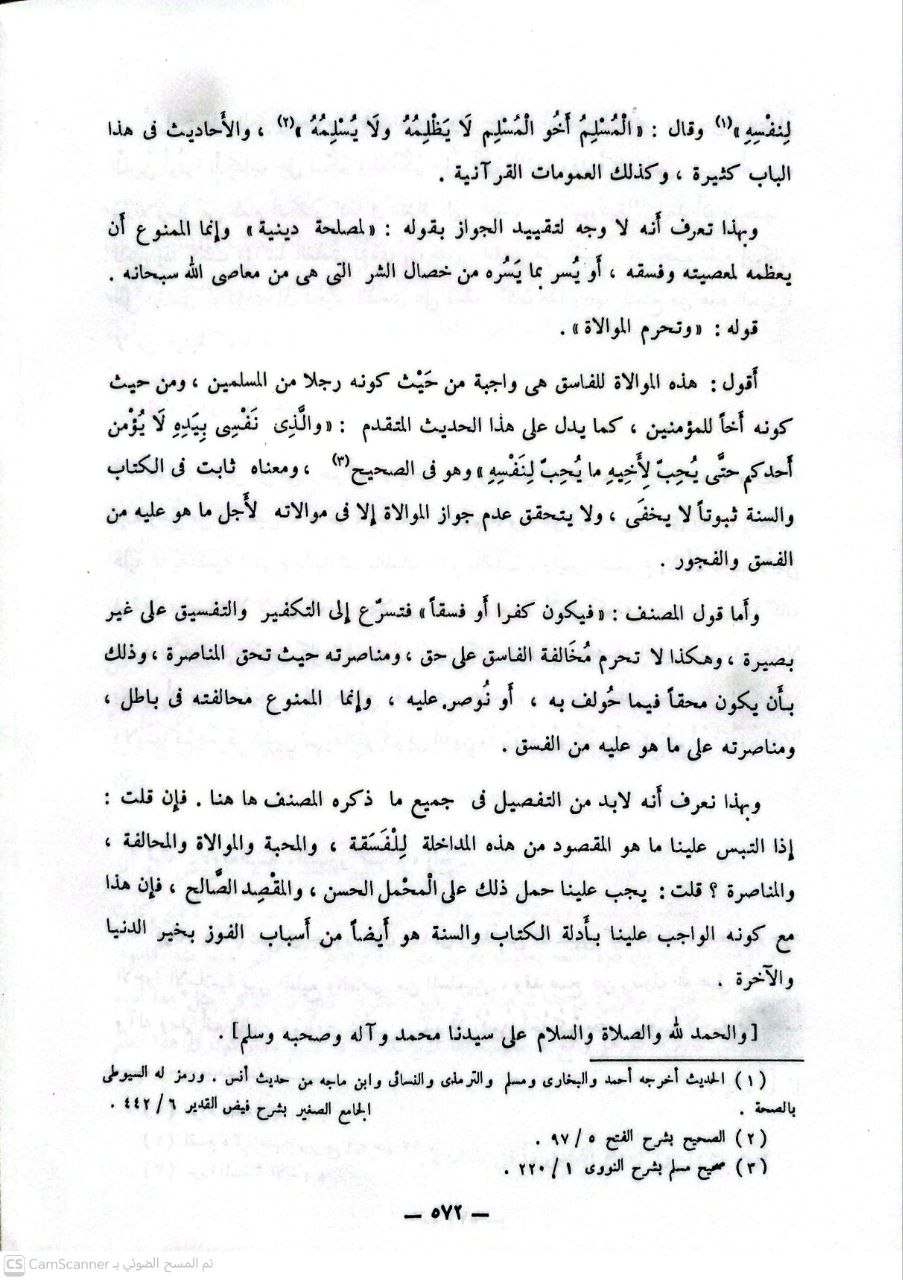 لِنفْسِهِ»(١) وقال : «الْمُسْلِمُ أَخُو الْمُسْلِم لَا يَظْلِمُهُ ولَا يُسْلِمُهُ »(٢) ، والأَحاديث فى هذا
الباب كثيرة ، وكذلك العمومات القرآنية .
وبهذا تعرف أَنه لا وجه لتقييد الجواز بقوله : «لمصلحة دينية» وإنما الممنوع أَن
يعظمه لمعصيته وفسقه ، أَو يُسر بما يَسُره من خصال الشر التى هى من معاصى الله سبحانه .
قوله : «وتحرم الموالاة» .
أَقول : هذه الموالاة للفاسق هى واجبة من حَيْث كونه رجلا من المسلمين ، ومن حيث
كونه أَخاً للمؤمنين ، كما يدل على هذا الحديث المتقدم : «والَّذِى نَفْسِى بِيَدِهِ لَا يُؤْمن
أَحدكم حتَّى يُحِبّ لِأَخِيهِ ما يُحِبّ لِنَفْسِهِ» وهو فى الصحيح(٣) ، ومعناه ثابت فى الكتاب
والسنة ثبوتاً لا يخفَى ، ولا يتحقق عدم جواز الموالاة إلا فى موالاته لأَجل ما هو عليه من
الفسق والفجور .
وأَما قول المصنف : «فيكون كفرا أَو فسقاً» فتسرّع إلى التكفير والتفسيق على غير
بصيرة ، وهكذا لا تحرم مُخَالفة الفاسق على حق ، ومناصرته حيث تحق المناصرة ، وذلك
بأَن يكون محقاً فيما حُولف به ، أَو نُوصر عليه ، وإنما الممنوع محالفته فى باطل ،
ومناصرته على ما هو عليه من الفسق .
وبهذا نعرف أَنه لابد من التفصيل فى جميع ما ذكره المصنف ها هنا . فإن قلت :
إذا التبس علينا ما هو المقصود من هذه المداخلة لِلْفَسَقة ، والمحبة والموالاة والمحالفة ،
والمناصرة ؟ قلت : يجب علينا حمل ذلك على الْمحْمل الحسن ، والمقْصِد الصَّالح ، فإن هذا
مع كونه الواجب علينا بأَدلة الكتاب والسنة هو أَيضاً من أَسباب الفوز بخير الدنيا
والآخرة .
[والحمد لله والصلاة والسلام على سيدنا محمد وآله وصحبه وسلم] .
(١) الحديث أخرجه أحمد والبخارى ومسلم والترمذى والنسائى وابن ماجه من حديث أنس . ورمز له السيوطى
بالصحة . الجامع الصغير بشرح فيض القدير ٦/ ٤٤٢ .
(٢) الصحيح بشرح الفتح ٥/ ٩٧ .
(٣) صحيح مسلم بشرح النووى ١/ ٢٢٠ .
— ٥٧٢ —
CS CamScanner تم المسح الضوئي بـ